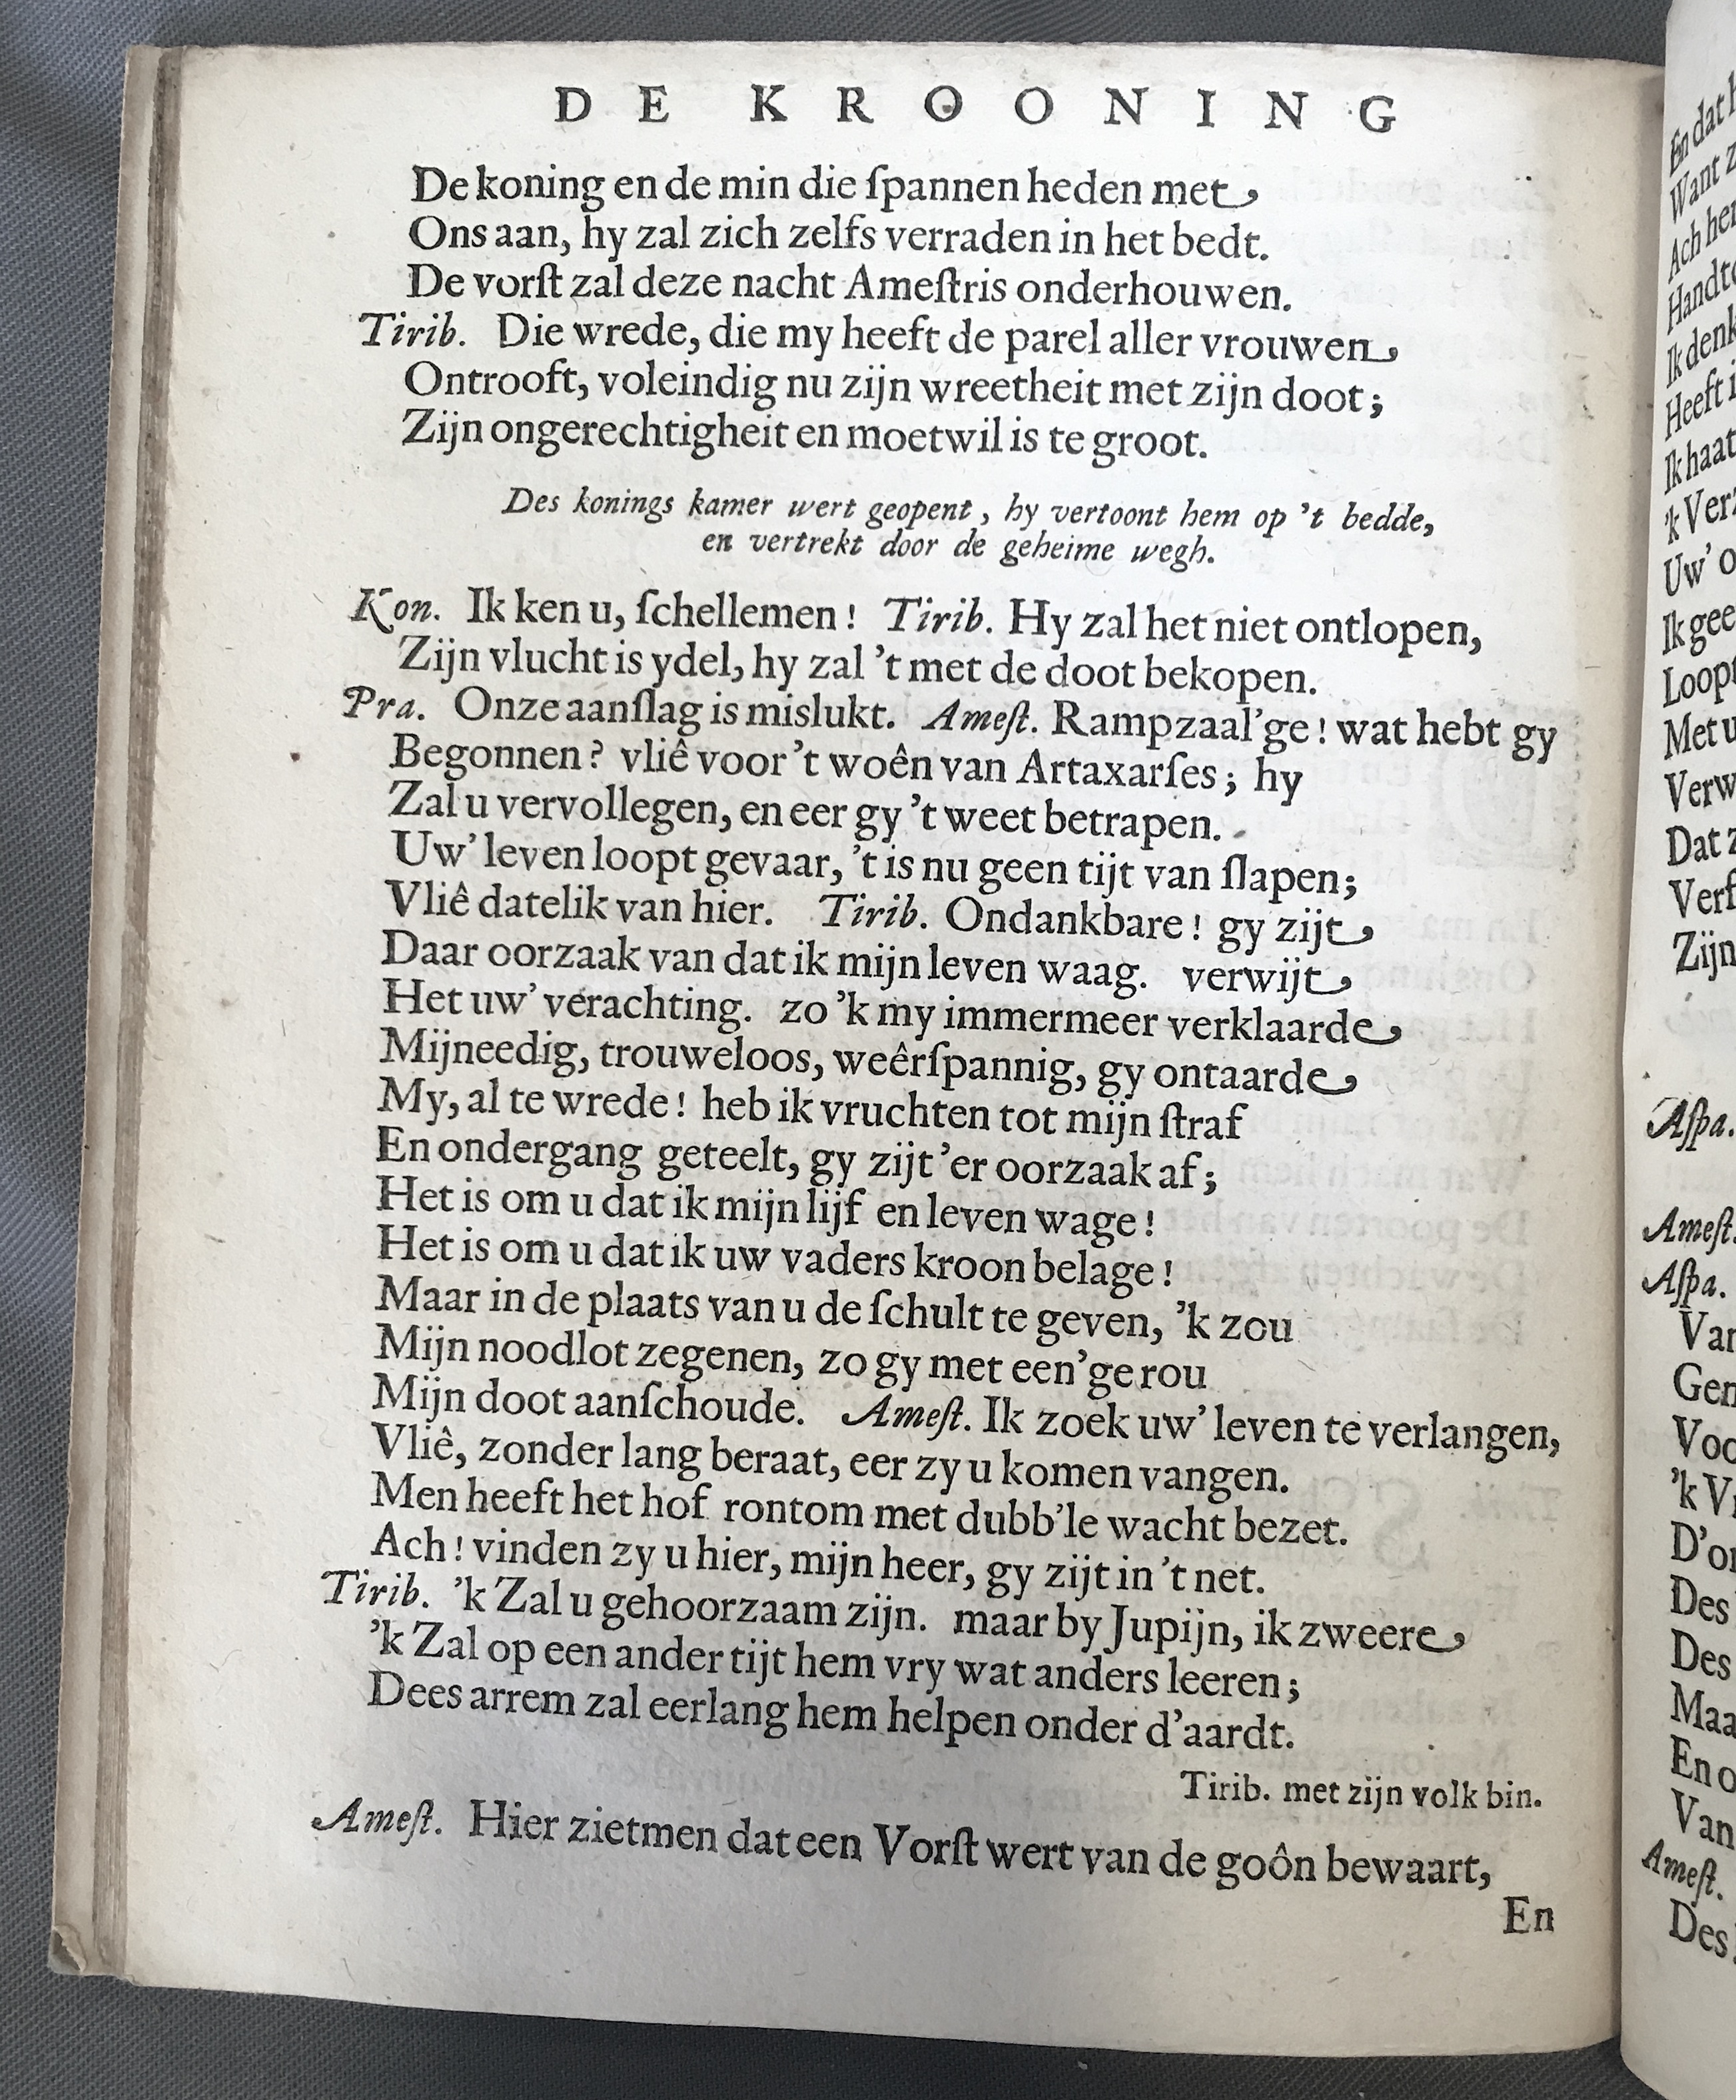 DE KROONING
De koning en de min die ſpannen heden met
Ons aan, hy zal zich zelfs verraden in het bedt.
De vorſt zal deze nacht Ameſtris onderhouwen.
Tirib. Die wrede, die my heeft de parel aller vrouwen
Ontrooft, voleindig nu zijn wreetheit met zijn doot;
Zijn ongerechtigheit en moetwil is te groot.
Des konings kamer wert geopent, hy vertoont hem op 't bedde,
en vertrekt door de geheime wegh.
Kon. Ik ken u, ſchellemen! Tirib. Hy zal het niet ontlopen,
Zijn vlucht is ydel, hy zal 't met de doot bekopen.
Pra. Onze aanſlag is mislukt. Ameſt. Rampzaal'ge! wat hebt gy
Begonnen? vliê voor 't woên van Artaxarſes; hy
Zal u vervollegen, en eer gy 't weet betrapen.
Uw' leven loopt gevaar, 't is nu geen tijt van ſlapen;
Vliê datelik van hier. Tirib. Ondankbare! gy zijt
Daar oorzaak van dat ik mijn leven waag. verwijt
Het uw' verachting. zo 'k my immermeer verklaarde
Mijneedig, trouweloos, weêrſpannig, gy ontaarde
My, al te wrede! heb ik vruchten tot mijn ſtraf
En ondergang geteelt, gy zijt 'er oorzaak af;
Het is om u dat ik mijn lijf en leven wage!
Het is om u dat ik uw vaders kroon belage!
Maar in de plaats van u de ſchult te geven, 'k zou
Mijn noodlot zegenen, zo gy met een'ge rou
Mijn doot aanſchoude. Ameſt. Ik zoek uw' leven te verlangen,
Vliê, zonder lang beraat, eer zy u komen vangen.
Men heeft het hof rontom met dubb'le wacht bezet.
Ach! vinden zy u hier, mijn heer, gy zijt in 't net.
Tirib. 'k Zal u gehoorzaam zijn. maar by Jupijn, ik zweere
'k Zal op een ander tijt hem vry wat anders leeren;
Dees arrem zal eerlang hem helpen onder d'aardt.
Tirib. met zijn volk bin.
Ameſt. Hier zietmen dat een Vorſt wert van de goôn bewaart,
En
En dat
Want
Ach
Ik denk
Heeft
Ik haat
'k
Uw'
Ik
Met
Dat
Zijn
Aſpa.
Ameſt.
Aſpa.
'k
Des
Des
Ameſt.
Des